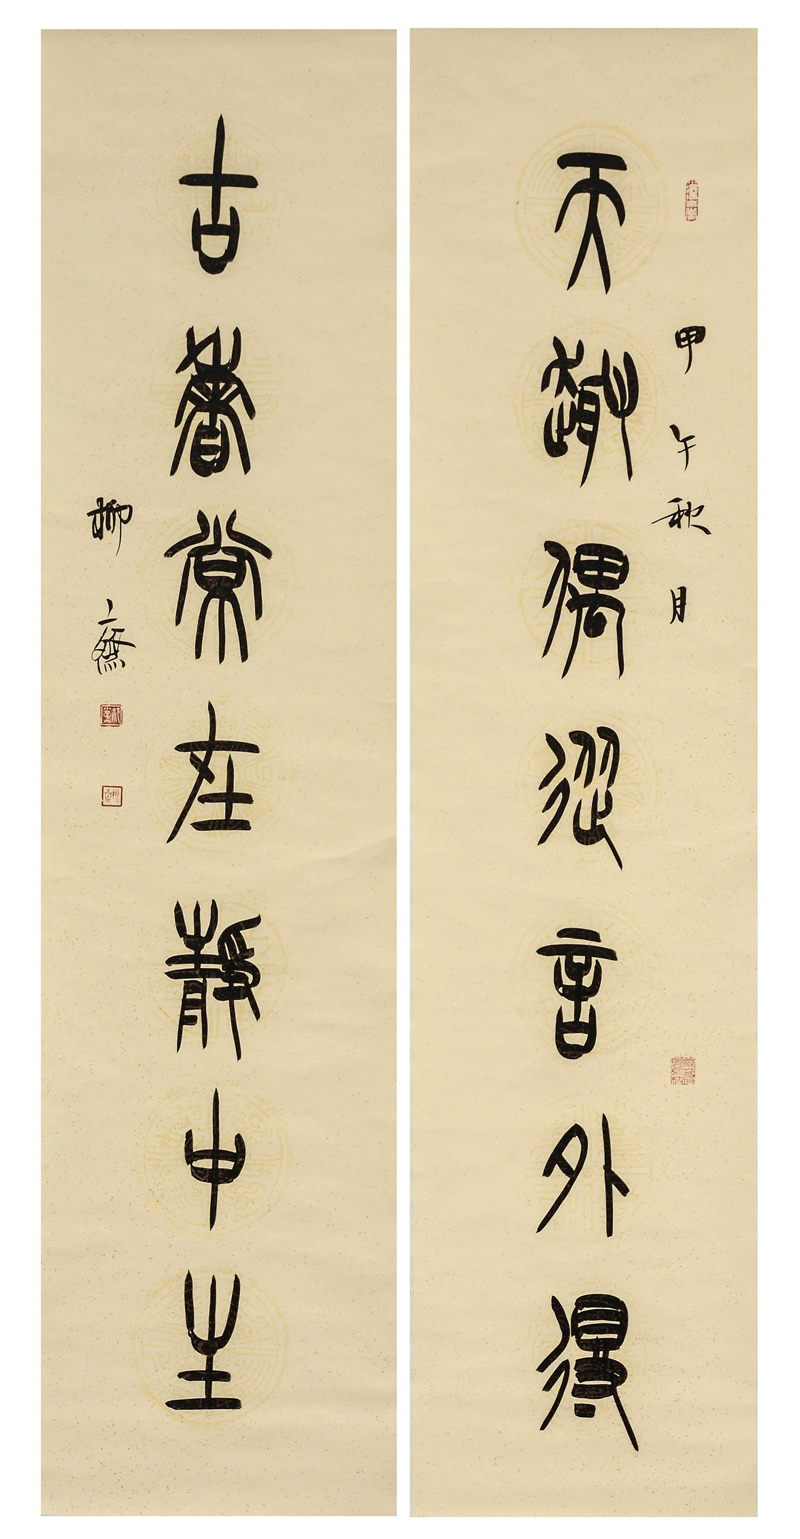 天趣偶從言外得
甲午秋月
古香常在靜中生
柳齋